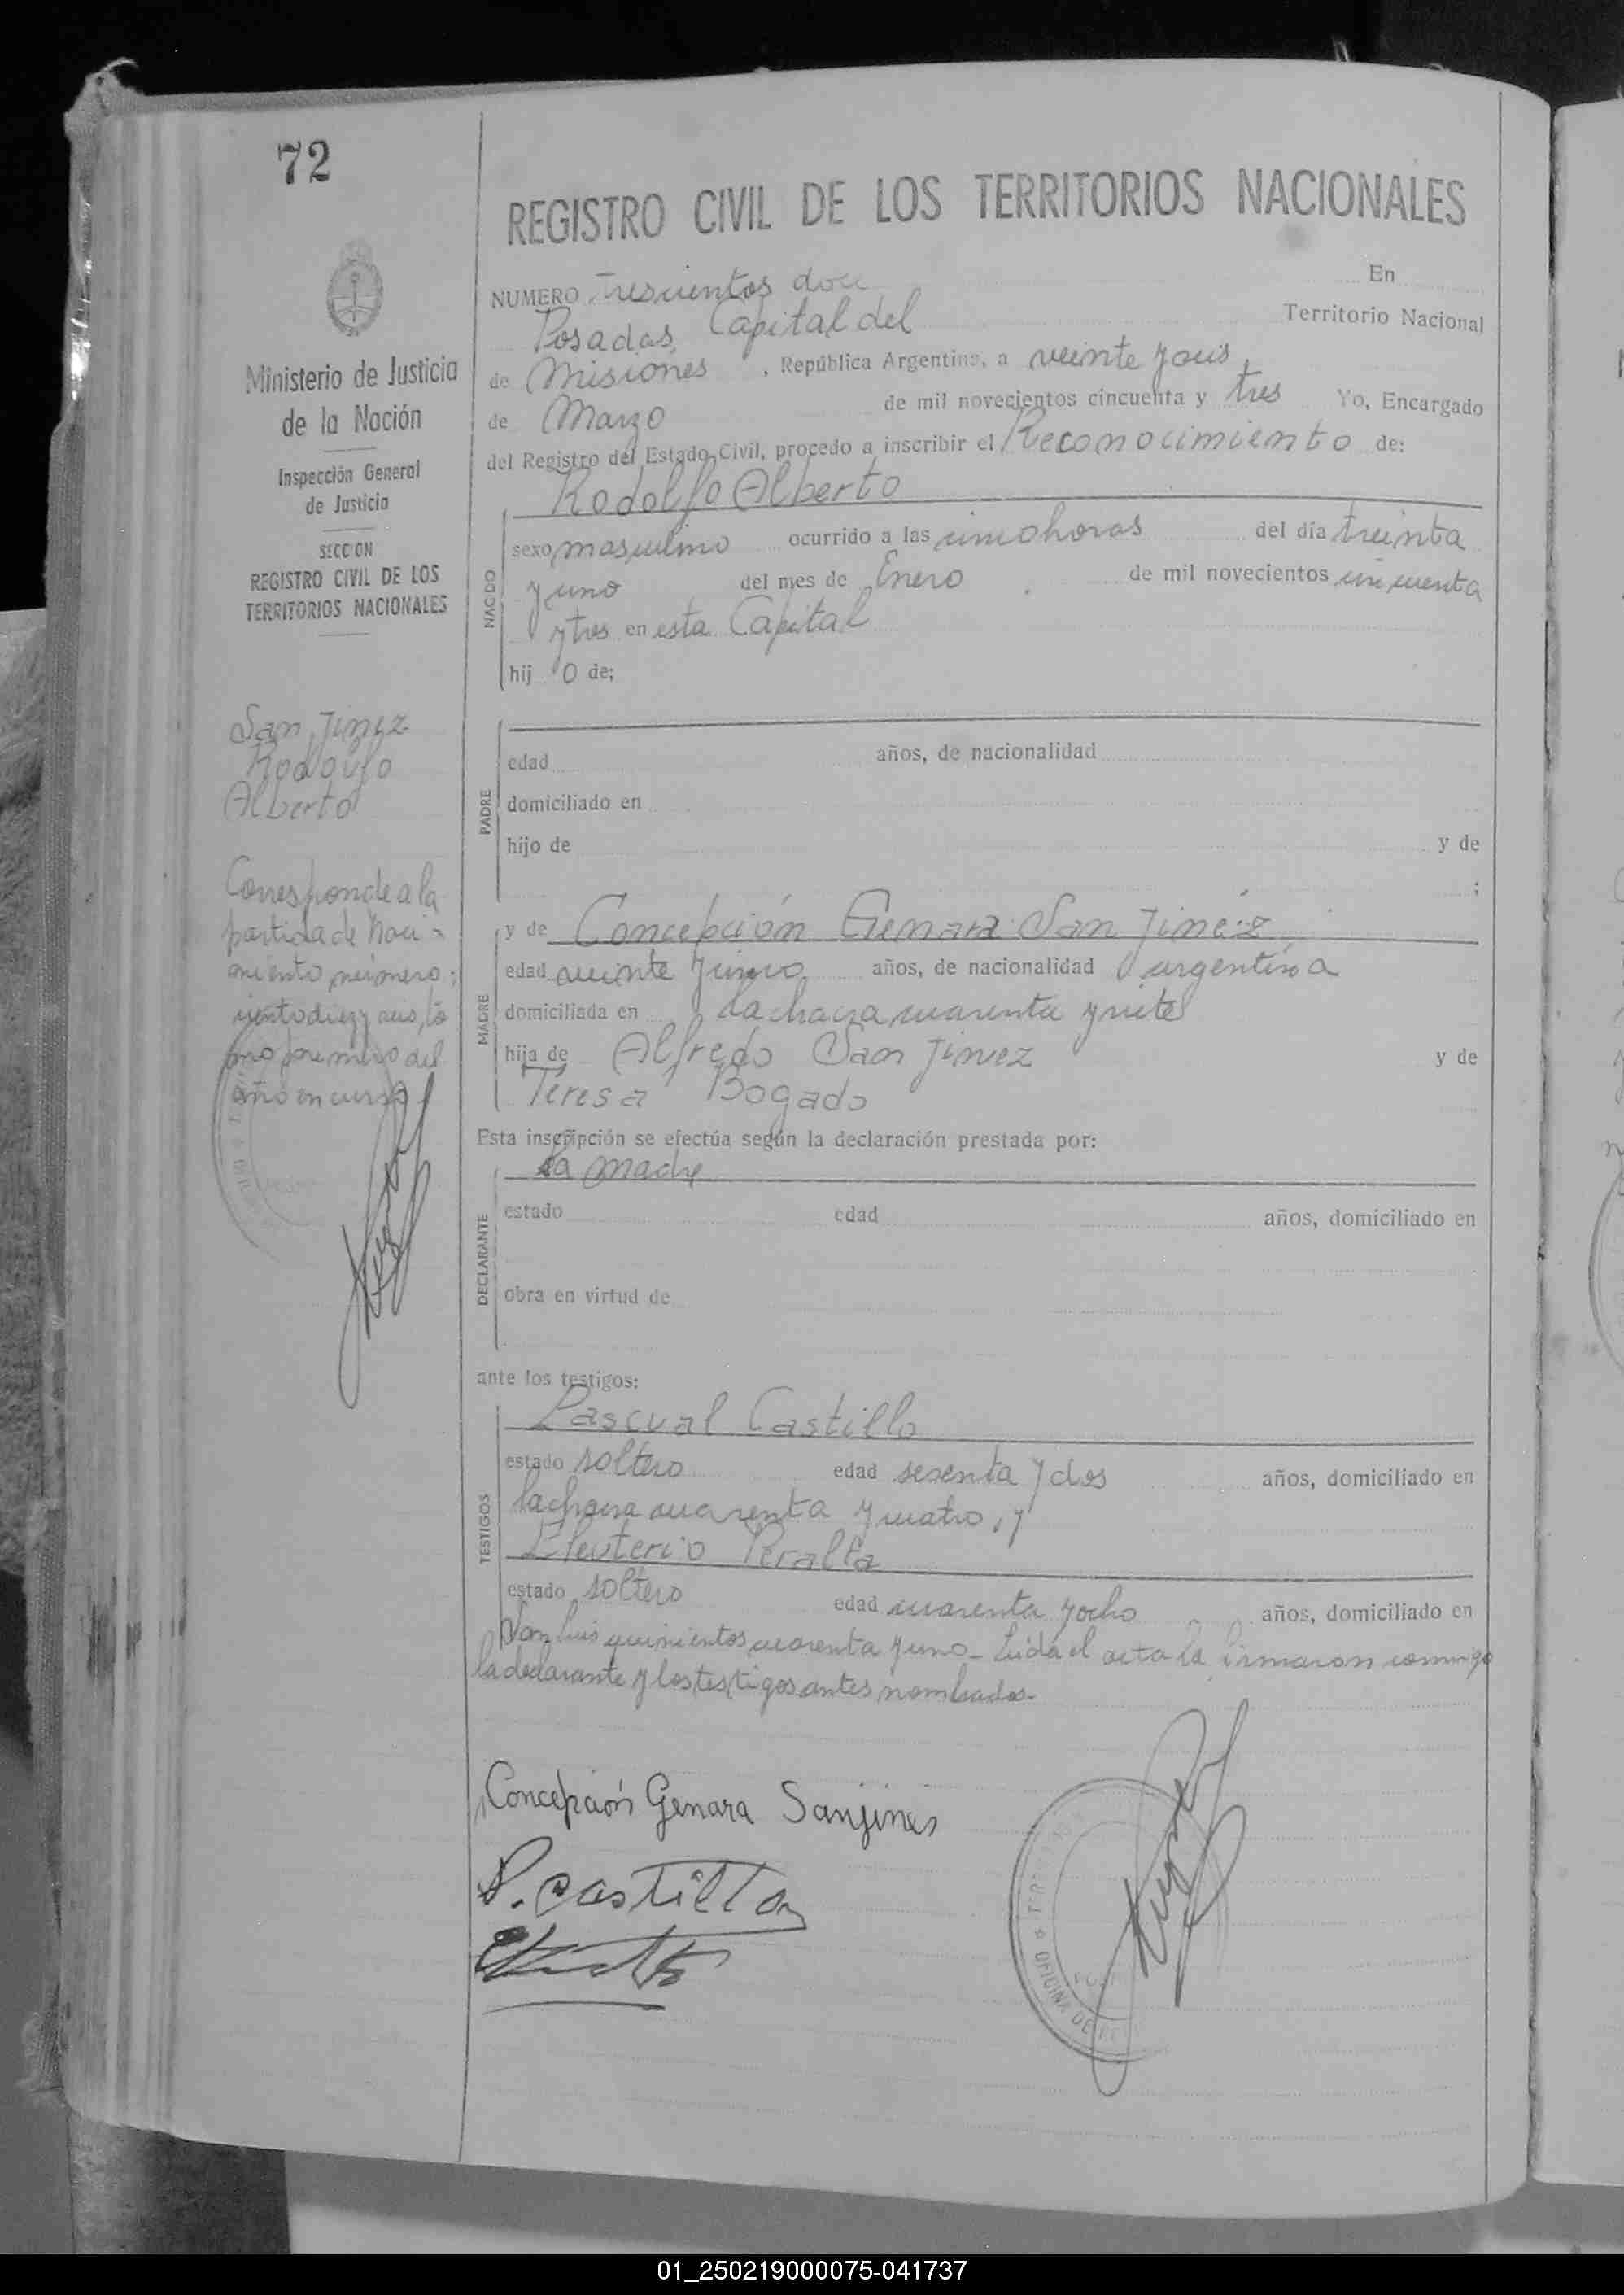 72
REGISTRO CIVIL DE LOS TERRITORIOS NACIONALES
NUMERO Trescientos doce En
Posadas, Capital del Territorio Nacional
de Misiones, República Argentina, a veinte y seis
de Marzo de mil novecientos cincuenta y tres Yo, Encargado
del Registro del Estado Civil, procedo a inscribir el Reconocimiento de:
Rodolfo Alberto
NACIDO
sexo masculino ocurrido a las cinco horas del día treinta
y uno del mes de Enero de mil novecientos cincuenta
y tres en esta Capital
hij o de;
PADRE
edad años, de nacionalidad
domiciliado en
hijo de y de
;
MADRE
y de Concepción Genara San Jinéz,
edad veinte y cinco años, de nacionalidad argentina
domiciliada en la chacra cuarenta y siete
hija de Alfredo San Jinez y de
Teresa Bogado
Esta inscripción se efectúa según la declaración prestada por:
la madre
DECLARANTE
estado edad años, domiciliado en
obra en virtud de
ante los testigos:
TESTIGOS
Pascual Castillo
estado soltero edad sesenta y dos años, domiciliado en
la chacra cuarenta y cuatro, y
Eleuterio Peralta
estado soltero edad cuarenta y ocho años, domiciliado en
San Luis quinientos cuarenta y uno_ Leída el acta la firmaron conmigo
la declarante y los testigos antes nombrados.-
Concepción Genara Sanjines
P. Castillo
OFICINA DE
Ministerio de Justicia
de la Nación
Inspección General
de Justicia
SECCION
REGISTRO CIVIL DE LOS
TERRITORIOS NACIONALES
San Jinez
Rodolfo
Alberto
Corresponde a la
partida de naci-
miento número:
ciento diez y seis, to
mo primero del
año en curso
01_250219000075-041737